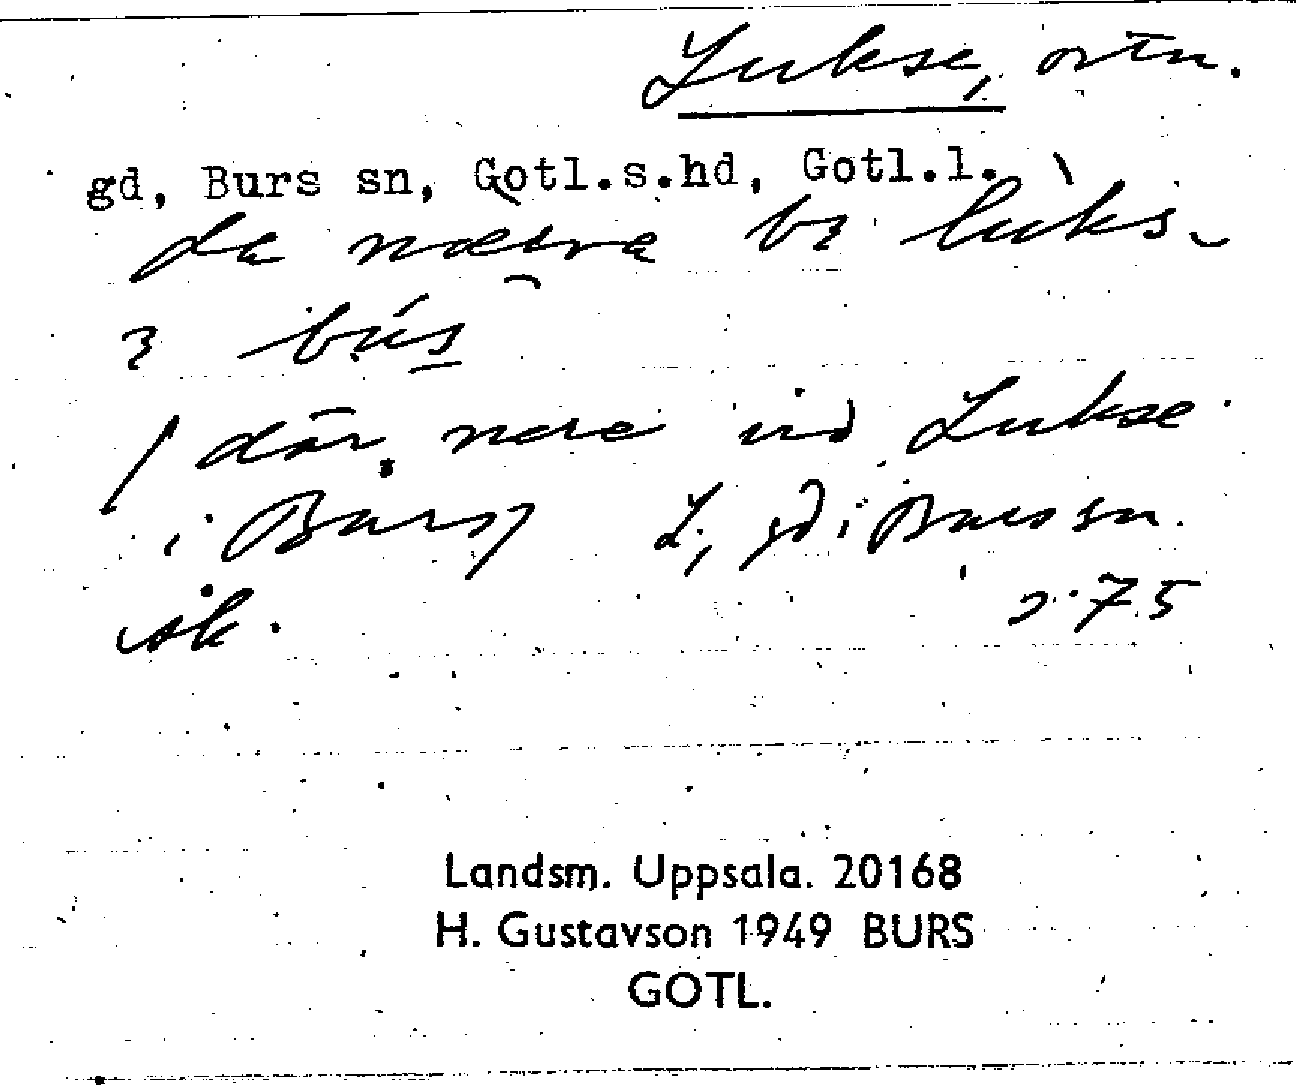 Lukse, ortn.
gd, Burs sn, Gotl.s.hd, Gotl.l.
bus
/ där nere vid Lukse
i Burs/ L, gd i Burs sn.
s. 75
Landsm. Uppsala. 20168
H. Gustavson 1949 BURS
GOTL.